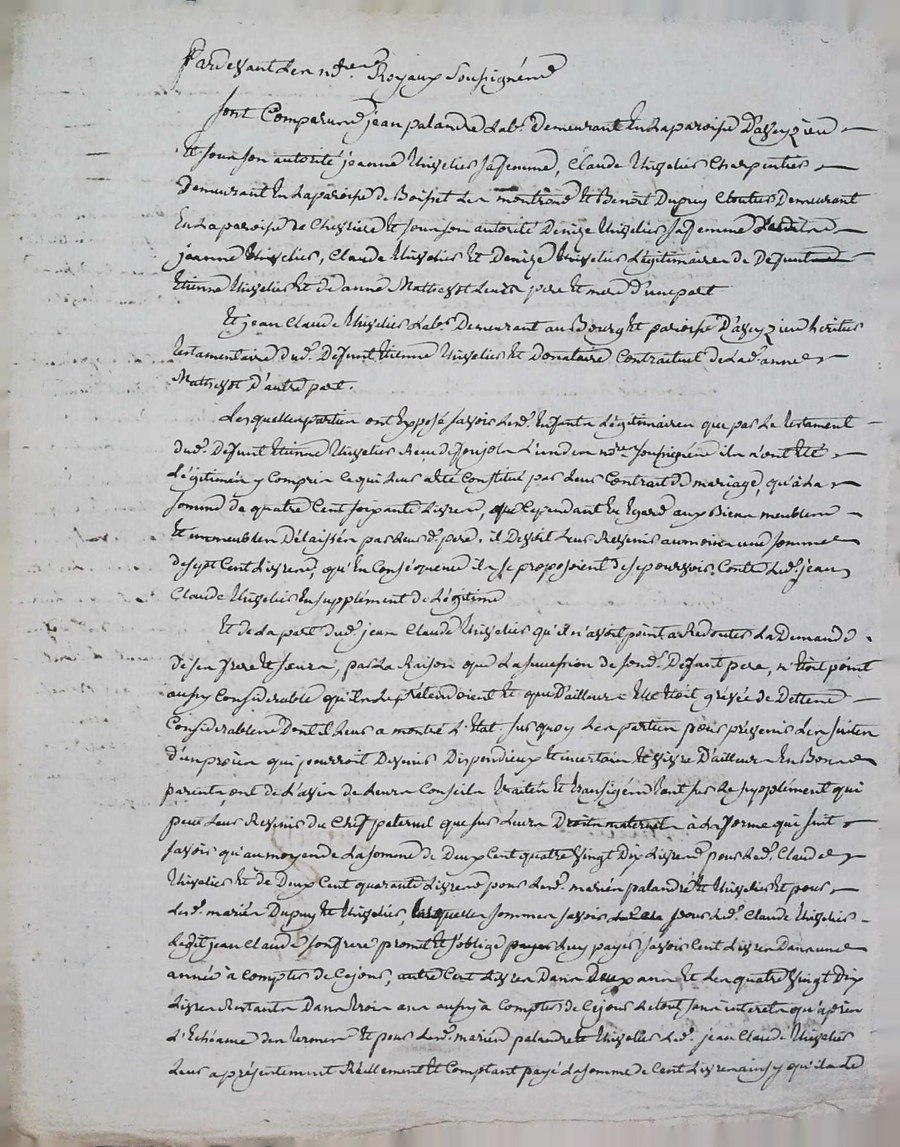 Pardevant Les nres Royaux Soussignés
Sont Comparus jean palandre Labr Demeurant En La paroisse D'aveyzieu
Et sous son autorité jeanne Thivelier Sa femme, Claude Thivelier Charpentier
Demeurant En La paroisse de Boisset Les montrond Et Benoit Dupuy Cloutier Demeurant
En La paroisse de Et sous son autorité Denize Thivelier Sa femme
jeanne Thivelier, Claude Thivelier Et Denize Thivelier Légitimaires de Defunt
Etienne Thivelier Et d'anne Mathevot Leurs pere Et mere d'une part
Et jean Claude Thivelier Labr Demeurant au Bourg Et paroisse D'aveyzieu héritier
testamentaire dud. Defunt Etienne Thivelier Et Donataire Contractuel de Lad. anne
Mathevot D'autre part.
Lesquelles parties ont Exposé Savoir Lesd. Enfants Légitimaires que par Le testament
dud. Defunt Etienne Thivelier Reçu L'un des nres Soussignés ils n'ont Eté
Légitimés y Compris Ce qui Leur a eté Constitué par Leurs Contrats de mariage, qu'à La
Somme de quatre Cent Soixante Livres, que Cependant Eu Egard aux Biens meubles
Et immeubles Délaissés par Leurd. pere, il Devoit Leur Revenir au moins une Somme
de sept Cent Livres, qu'En Conséquence ils se proposoient de se pourvoir Contre Led. jean
Claude Thivelier En supplément de Légitime
Et de La part dud. jean Claude Thivelier qu'il n'avoit point a Redouter La Demande
de ses frere Et soeurs, par La Raison que La succession de sond. Defunt pere, n'Etoit point
aussy Considerable qu'ils Le prétendoient Et que D'ailleurs Elle Etoit grévée de Dettes
Considerables Dont il Leur a montré L'Etat. Sur quoy Les parties pour prévenir Les suites
d'un procès qui pourroit Devenir Dispendieux Et incertain Et vivre D'ailleurs En Bons
parents, ont de L'avis de Leurs Conseils traités Et transigés tant sur Le supplément qui
peut Leur Revenir du Chef paternel que sur Leurs Droits maternels à La forme qui suit
Savoir qu'au moyen de La somme de Deux Cent quatre Vingt Dix Livres pour Led. Claude
Thivelier Et de Deux Cent quarante Livres pour Lesd. mariés palandre Et Thivelier Et pour
Lesd. mariés Dupuy Et Thivelier, Lesquelles sommes savoir pour Led. Claude Thivelier
Ledit jean Claude son frere promet Et s'oblige Luy payer savoir Cent Livres Dans une
année à Compter de Ce jour, autre Cent Livres Dans Deux ans Et Les quatre Vingt Dix
Livres Restants Dans trois ans aussy à Compter de Ce jour Le tout sans interets qu'après
L'Echéance des termes Et pour Lesd. mariés palandre Et Thivelier Led. jean Claude Thivelier
Leur a présentement Réellement Et Comptant payé La somme de Cent Livres ainsy qu'ils Le